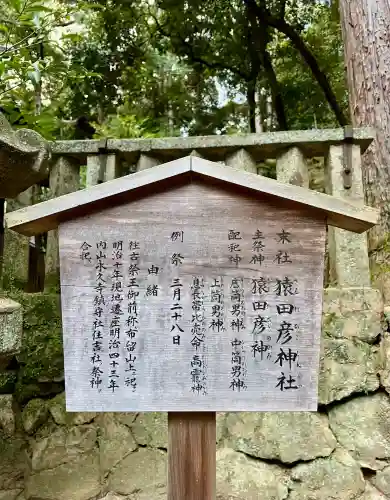 末社 猿田彦神社
主祭神 猿田彦神
配祀神 底筒男神 中筒男神
上筒男神
息長帯比売命 高龗神
例祭 三月二十八日
由緒
往古祭王御前称布留山上ニ祀ル
明治十年現地ヘ遷座明治四十三年
内山永久寺鎮守社住吉社祭神ヲ
合祀